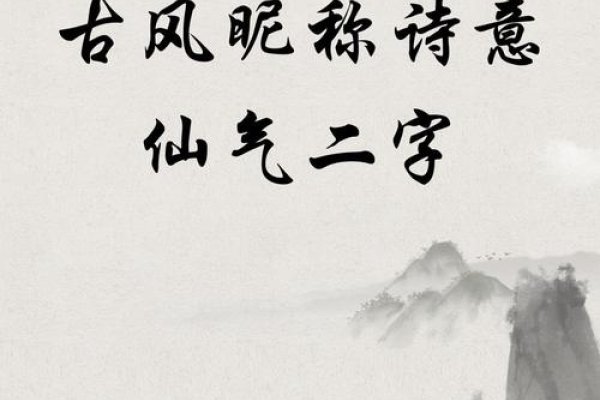 古风昵称诗意
仙气二字